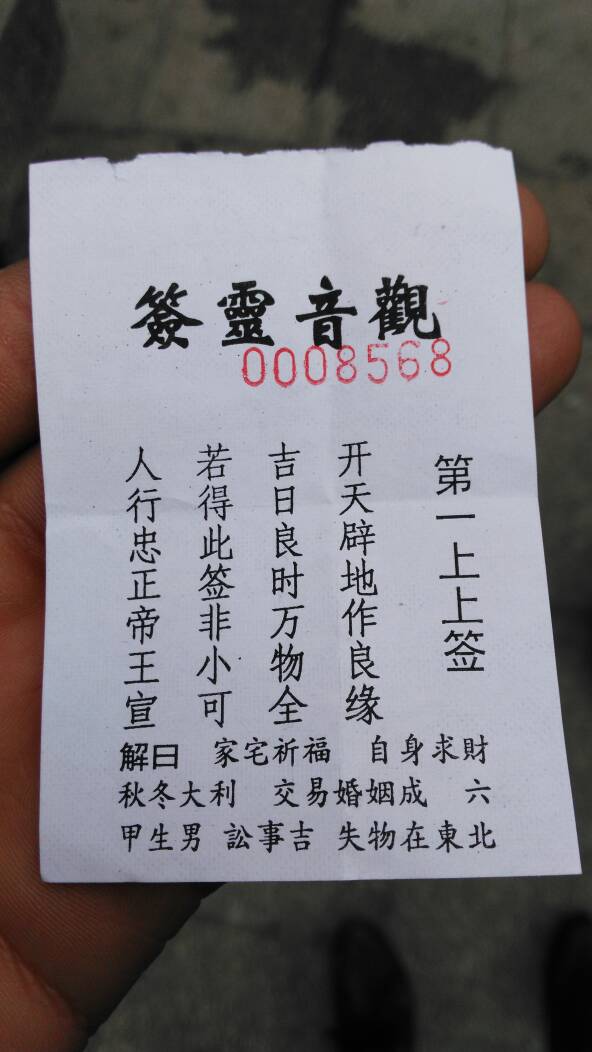 觀音靈簽
0008568
第一上上签
开天辟地作良缘
吉日良时万物全
若得此签非小可
人行忠正帝王宣
解曰 家宅祈福 自身求財
秋冬大利 交易婚姻成 六
甲生男 訟事吉 失物在東北